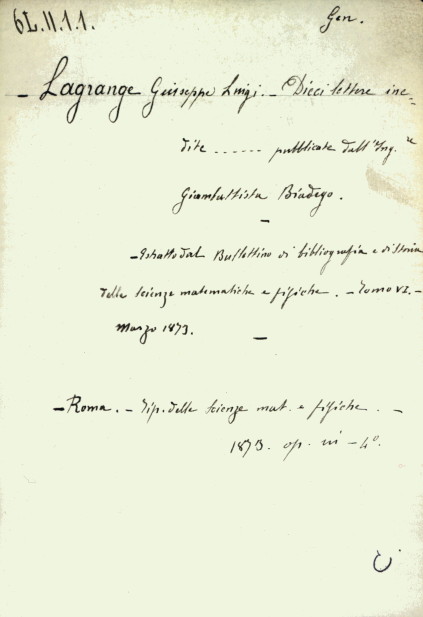 6L.II.1.1.
Gen.
- Lagrange Giuseppe Luigi. - Dieci lettere ine=
dite ...... pubblicate dall'Ing.re
Giambattista Biadego.
-
- Estratto dal Bullettino di bibliografia e di storia
delle scienze matematiche e fisiche. - Tomo VI. -
Marzo 1873. -
- Roma. - Tip. delle scienze mat. e fisiche. -
1873. op. in - 4º.